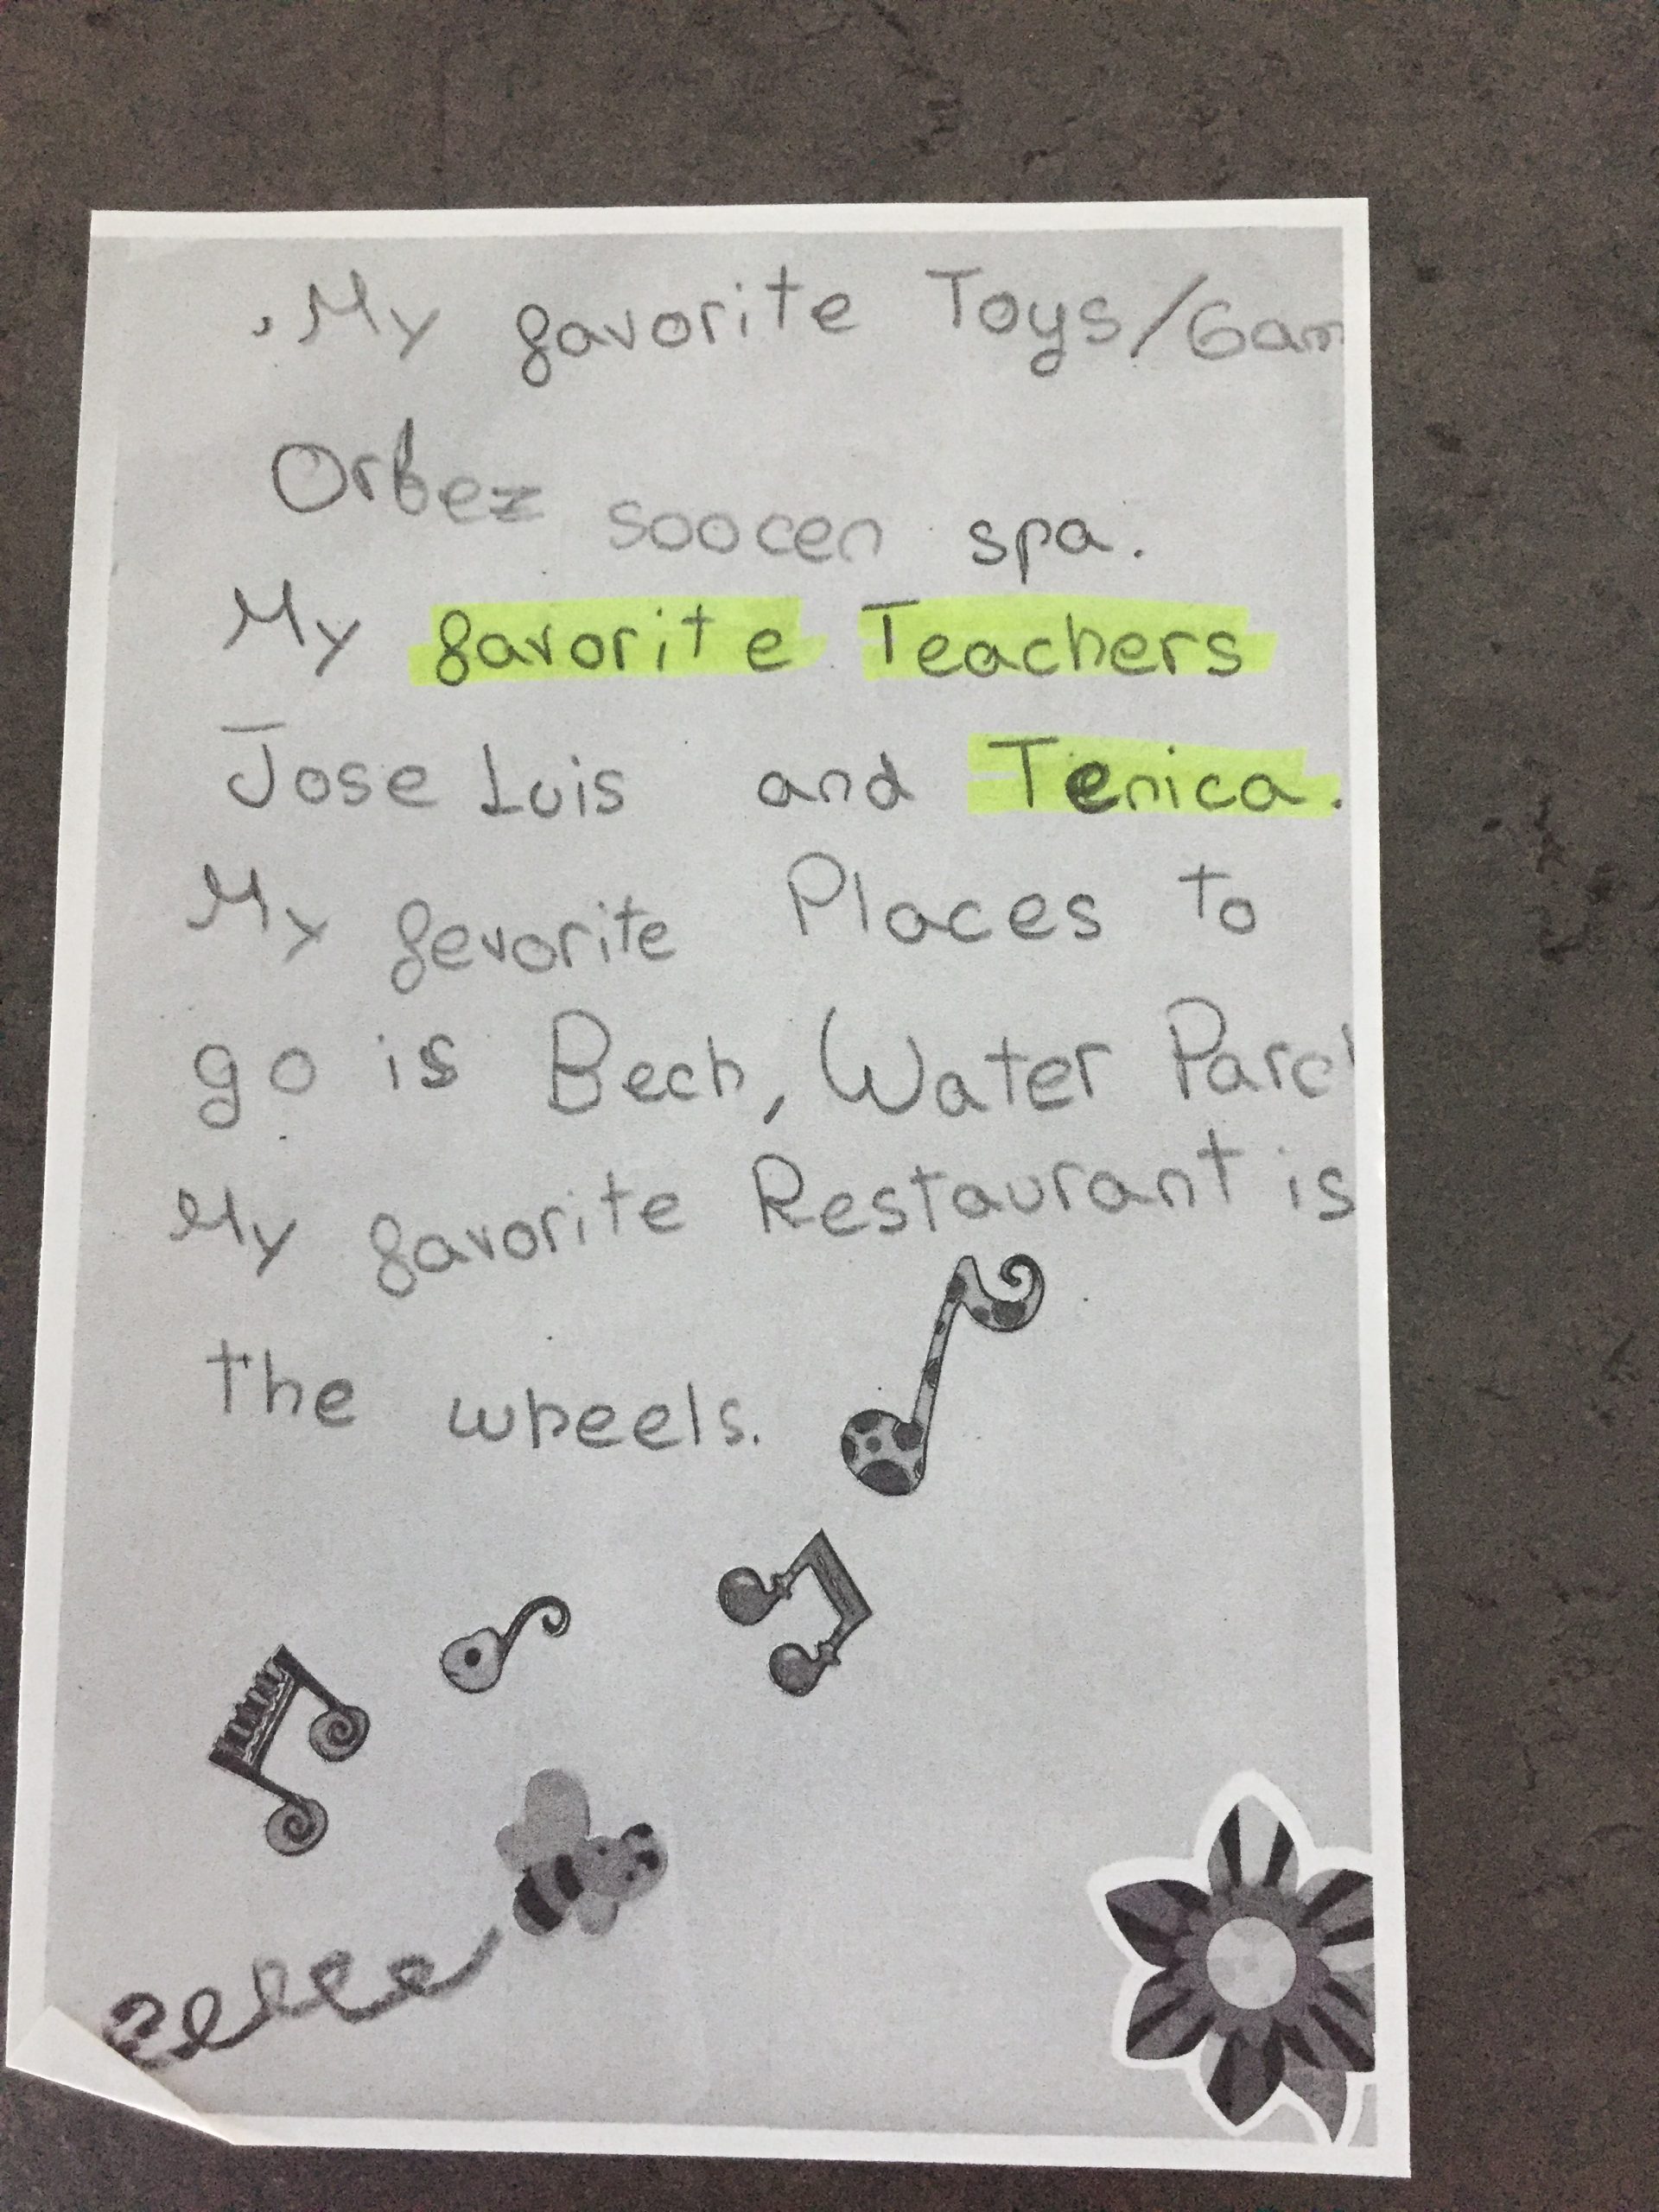 My favorite Toys/Gam
Orbez soocen spa.
My favorite Teachers
Jose Luis and Tenica.
My fevorite Places to
go is Bech, Water Parc
My favorite Restaurant is
the wheels.